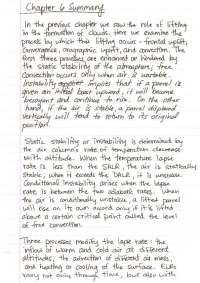 Chapter 6 Summary
In the previous chapter we saw the role of lifting
in the formation of clouds. Here we examine the
process by which that lifting occurs - frontal uplift,
Convergence, orographic uplift, and convection. The
first three are enhanced or hindered by
the static stability of the atmosphere; free
Convection occurs only when air is unstable.
Instability implies that if a parcel is
given an initial boost upward, it will become
buoyant and continue to rise. On the other
hand, if the air is stable, a parcel displaced
vertically will tend to return to its original
position.
Static stability or instability is determined by
the air column's rate of temperature decrease
with altitude. When the temperature lapse
rate is less than the SALR, the air is statically
stable; when it exceeds the DALR, it is unstable.
Conditional instability arises when the lapse
rate is between the two adiabatic rates. When
the air is conditionally unstable, a lifted parcel
will rise on its own accord only if it is lifted
above a certain critical point called the level
of free convection.
Three processes modify the lapse rate: the
inflow of warm and cold air at different
altitudes, the advection of different air mass,
and heating or cooling of the surface. ELRs
vary not only through time, but also with